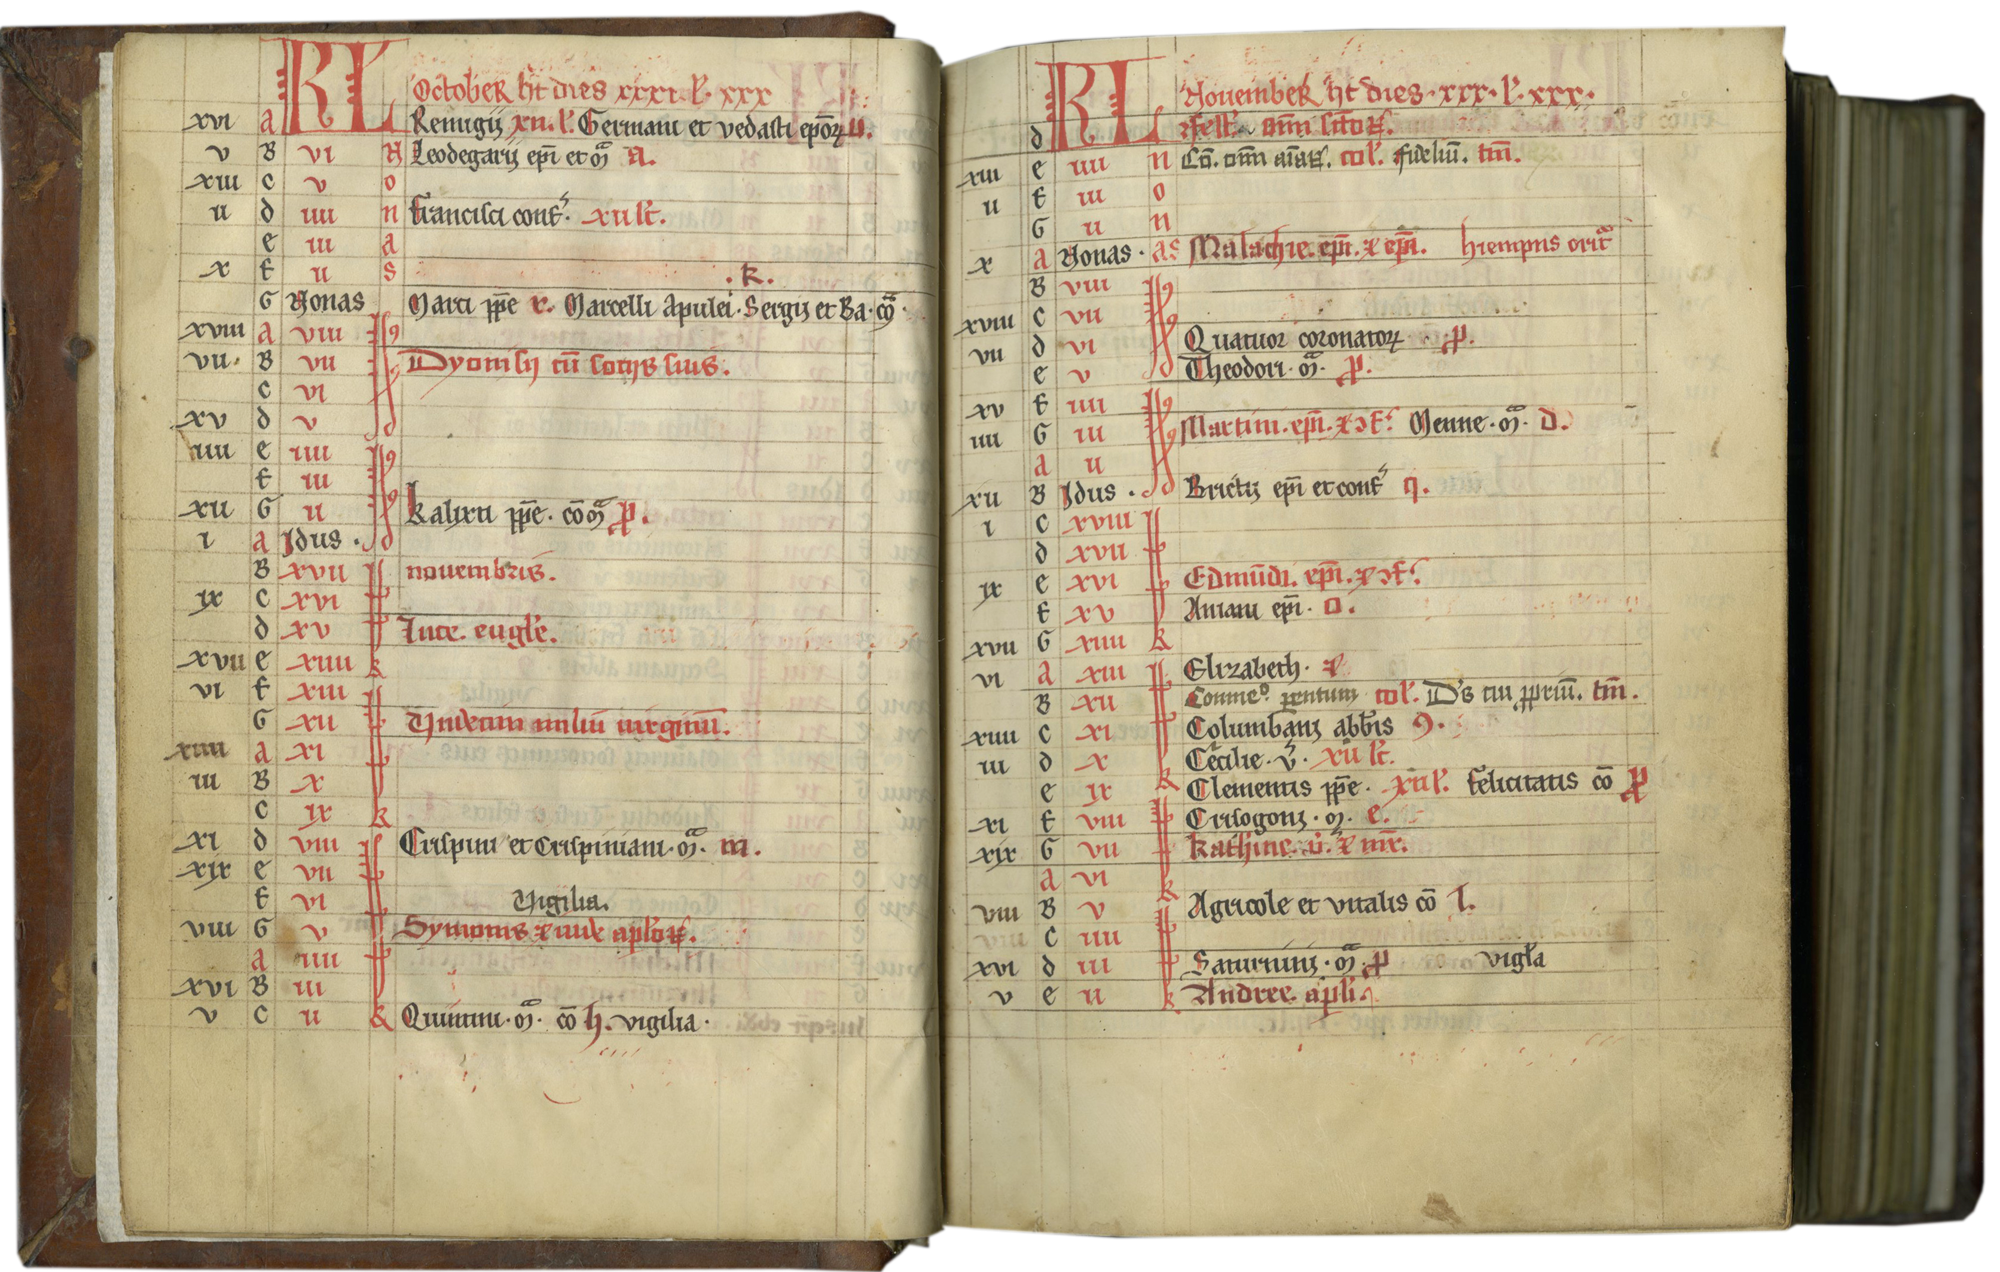 KL October ht dies xxxi l. xxx
xvi a Remigij xii. l. Germani et vedasti eporum
v B vi N Leodegarij epi et m
xiii c v o
ii d iiii n Francisci conf. xii lc.
e iii a
x f ii s . k.
G Nonas Marci ppe r. Marcelli Apulei. Sergij et Ba. com
xviii a viii
vii. B vii Dyonisij cum socijs suis.
c vi
xv d v
iiii e iiii
f iii
xii G ii kalixti ppe. com p.
i a Idus. Id
B xvii nouembris.
ix c xvi
d xv Luce. eugle.
xvii e xiiii k
vi f xiii
G xii Undecim miliu uirginu.
xiiii a xi
iii B x
c ix k
xi d viii Crispini et crispiniani. m. m.
xix e vii
f vi Vigilia.
viii G v Symonis et iude aplor.
a iiii
xvi B iii
v c ii k Quintini. m. co h. vigilia.
KL Nouember ht dies. xxx. l. xxx.
d Festu omi sctor.
xiii e iiii n Co. omi aiar. col. fideliu. tm.
ii f iii o
G ii n
x a Nonas. as Malachie. epi. et epi. hiempns orit
B viii
xviii c vii
vii d vi Quatuor coronator p.
e v Id Theodori. m. p.
xv f iiii
iiii G iii Martini. epi. et cf. Menne. m. d.
a ii
xii B Idus. Id Brictij epi et conf q.
i c xviii
d xvii
ix e xvi Edmudi. epi. et cf.
f xv Aniani epi. o.
xvii G xiiii k
vi a xiii Elizabeth. r
B xii Comme. parentum col. Ds cui ppriu. tm.
xiiii c xi Columbani abbis 9.
iii d x Cecilie. v. xii lc.
e ix k Clementis ppe. xii l. felicitatis co p
xi f viii Crisogoni. m. e.
xix G vii katherine. v. et mr.
a vi k
viii B v Agricole et vitalis co l.
viii c iiii
xvi d iii Saturnini. m. p vigla
v e ii k Andree. apli.